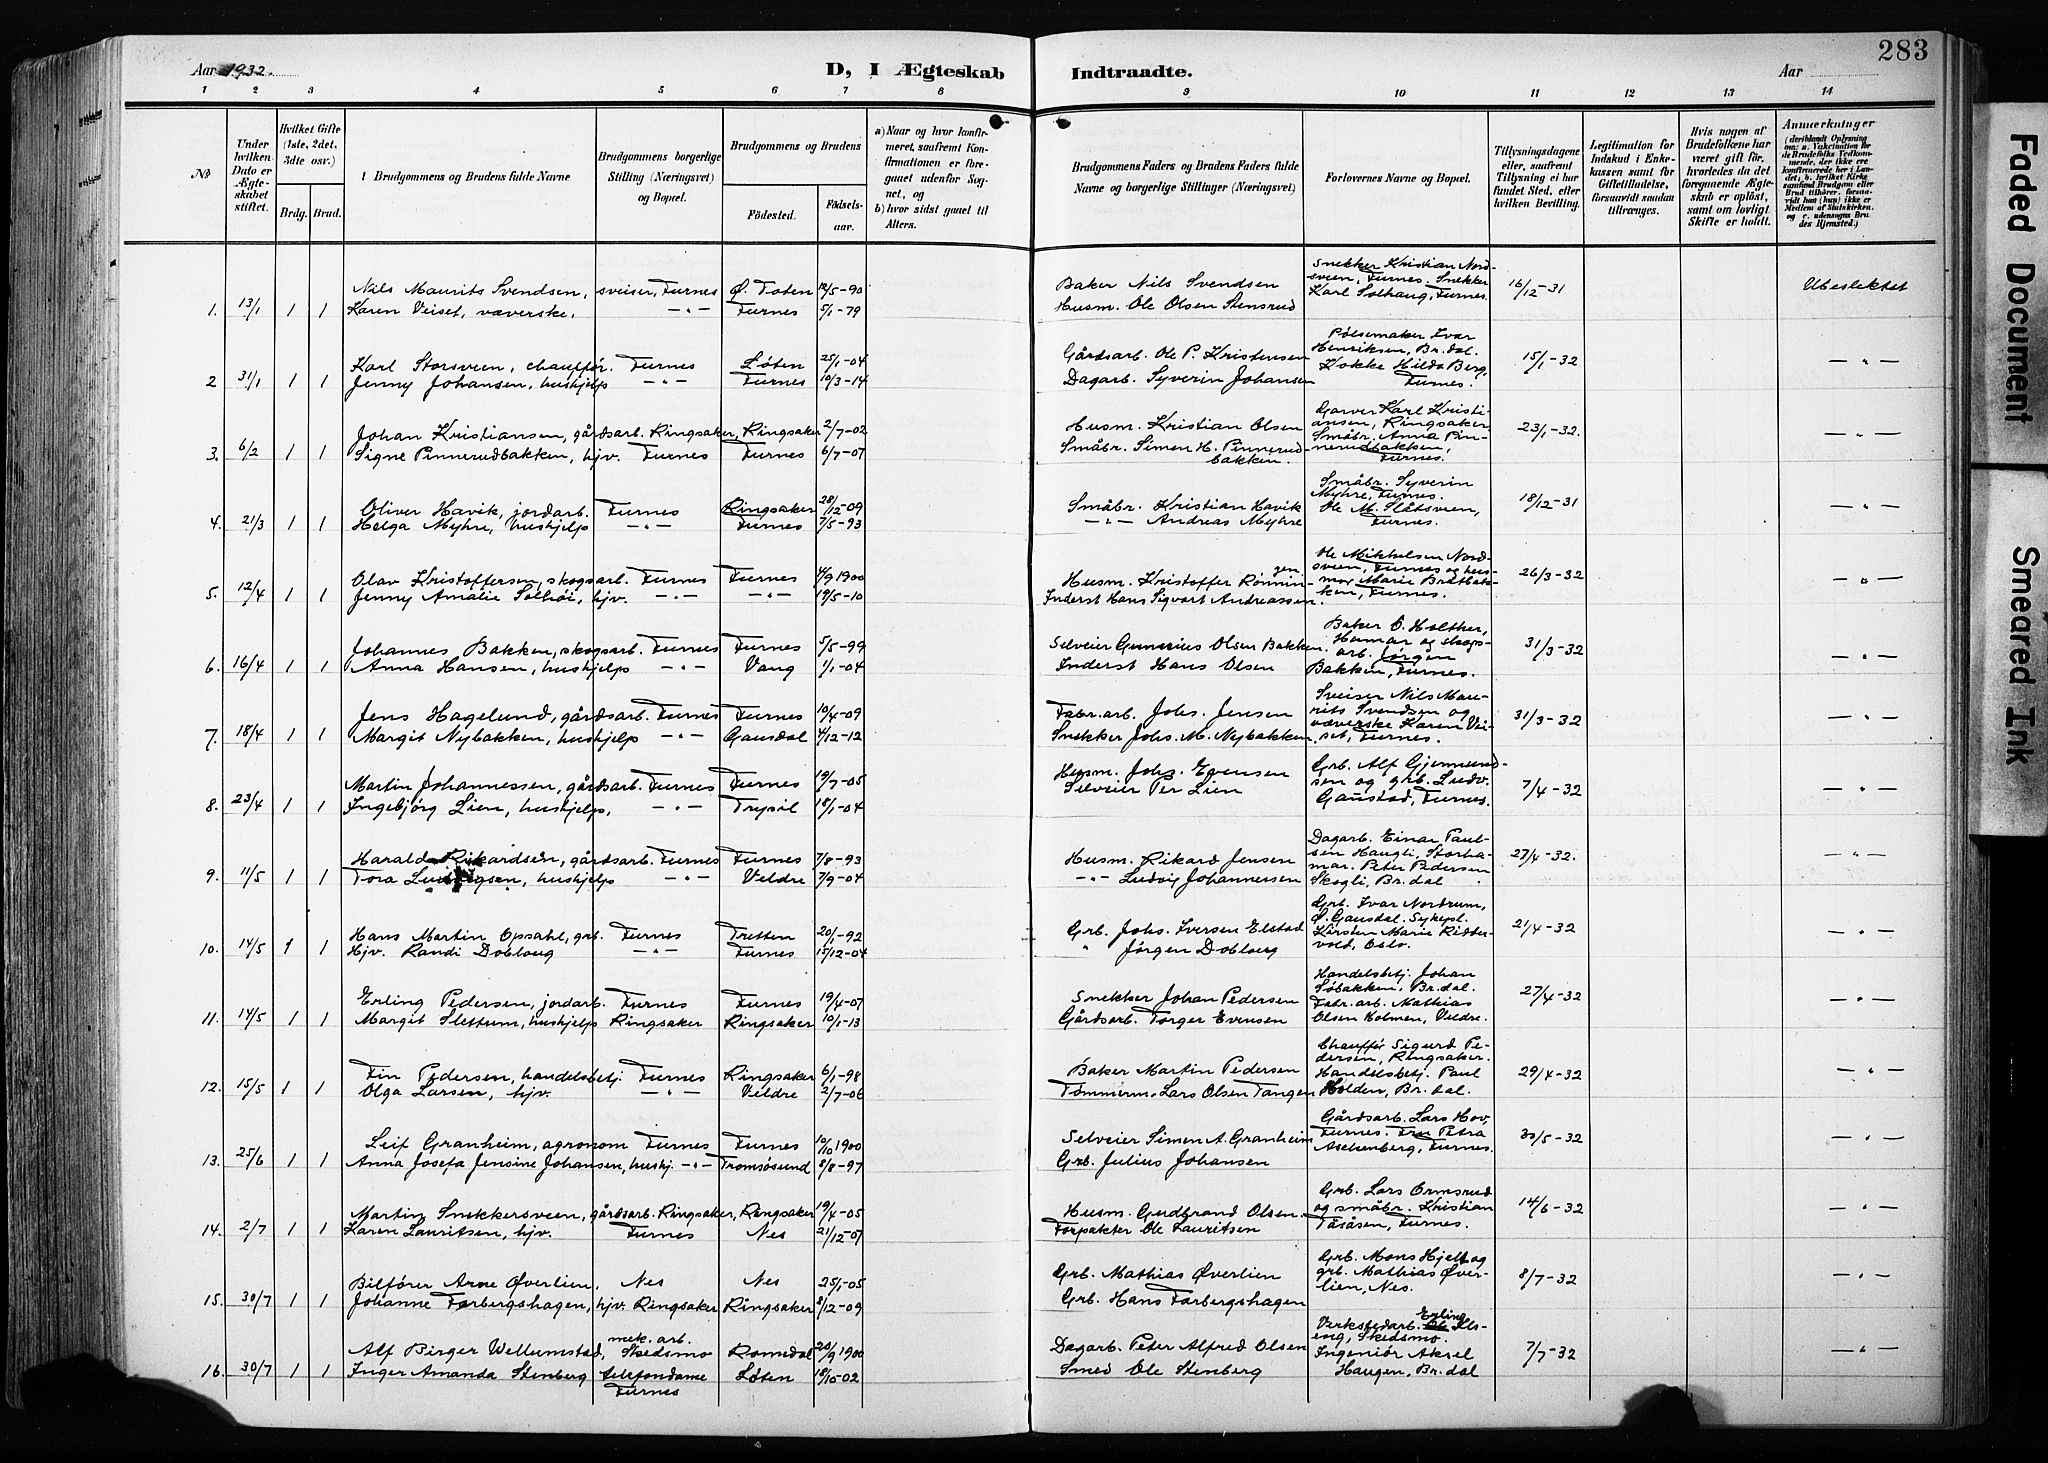 Aar 1932.
D, I Ægteskab
Indtraadte.
Aar
283
1 2 3 4 5 6 7 8
9 10 11 12 13 14
No
Under hvilken Dato er Ægteskabet stiftet.
Hvilket Gifte (1ste, 2det, 3dte osv.)
Brdg. Brud.
Brudgommens og Brudens fulde Navne
Brudgommens borgerlige Stilling (Næringsvei) og Bopæl.
Brudgommens og Brudens
Fødested.
Fødselsaar.
a) Naar og hvor konfirmeret, saafremt Konfirmationen er foregaaet udenfor Sognet, og
b) hvor sidst gaaet til Alters.
Brudgommens Faders og Brudens Faders fulde Navne og borgerlige Stillinger (Næringsvei)
Forlovernes Navne og Bopæl.
Tillysningsdagene eller, saafremt Tillysning ei har fundet Sted, efter hvilken Bevilling.
Legitimation for Indskud i Enkekassen samt for Giftetilladelse, forsaavidt saadan tiltrænges.
Hvis nogen af Brudefolkene har været gift før, hvorledes da det foregaaende Ægteskab er opløst, samt om lovligt Skifte er holdt.
Anmerkninger
(deriblandt Oplysning om: a. Vakcination for de Brudefolks Vedkommende, der ikke ere konfirmerede her i Landet, b. hvilket Kirkesamfund Brudgom eller Brud tilhører, forsaavidt han (hun) ikke er Medlem af Statskirken, og c. udensogns Brudes Hjemsted.)
Nils Maurits Svendsen, sveiser, Furnes Ø. Toten 12/5-90 Baker Nils Svendsen Snekker Kristian Nordsveen, Furnes. Snekker 16/12-31 Ubeslektet
1. 13/1 1 1 Karen Veiset, væverske, —"— Furnes 5/1-79 Husm. Ole Olsen Stensrud Karl Solhaug, Furnes.
Karl Storsveen, chauffør. Furnes Løten 25/1-04 Gårdsarb. Ole P. Kristensen Pølsemaker Ivar Henriksen, Br.dal. 15/1-32 —"—
2 31/1 1 1 Jenny Johansen, hushjelp —"— Furnes 10/3-14 Dagarb. Syverin Johansen Kokke Hilda Berg, Furnes.
Johan Kristiansen, gårdsarb. Ringsaker, Ringsaker 2/7-02 Husm. Kristian Olsen Garver Karl Kristiansen, Ringsaker 23/1-32. —"—
3. 6/2 1 1 Signe Pinnerudbakken, hjv. Furnes Furnes 6/7-07 Småbr. Simen H. Pinnerudbakken. Småbr. Anna Pinnerudbakken, Furnes.
Oliver Havik, jordarb. Furnes Ringsaker 28/12-09 Småbr. Kristian Havik Småbr. Syverin Myhre, Furnes. 18/12-31 —"—
4. 21/3 1 1 Helga Myhre, hushjelp —"— Furnes 7/5-93 —"— Andreas Myhre Ole M. Slåtsveen, Furnes.
Olav Kristoffersen, skogsarb. Furnes Furnes 4/9 1900 Husm. Kristoffer Rønningen Ole Mikkelsen Nordsveen, Furnes og husmor 26/3-32 —"—
5. 12/4 1 1 Jenny Amalie Solhøi, hjv. —"— —"— 19/5-10 Inderst Hans Sigvart Andreassen. Marie Bråtbakken, Furnes.
Johannes Bakken, skogsarb. Furnes Furnes 5/5-99 Selveier Gunerius Olsen Bakken. Baker O. Holther, Hamar og skogsarb. 31/3-32 —"—
6. 16/4 1 1 Anna Hansen, hushjelp —"— Vang 1/1-04 Inderst Hans Olsen Jørgen Bakken, Furnes.
Jens Hagelund, gårdsarb. Furnes Furnes 10/4-09 Fabr.arb. Johs. Jensen Sveiser Nils Maurits Svendsen og 31/3-32 —"—
7. 18/4 1 1 Margit Nybakken, hushjelp —"— Gausdal 4/12-12 Snekker Johs. M. Nybakken væverske Karen Veiset, Furnes.
Martin Johannessen, gårdsarb. Furnes Furnes 19/7-05 Husm. Johs. Evensen Grb. Alf Gjermundsen og grb. Ludv. 7/4-32 —"—
8. 23/4 1 1 Ingebjørg Lien, hushjelp, —"— Trysil 18/1-04 Selveier Per Lien Gaustad, Furnes.
Harald Rikardsen, gårdsarb. Furnes Furnes 7/8-93 Husm. Rikard Jensen Dagarb. Einar Paulsen Haugli, Storhamar. 27/4-32. —"—
9. 11/5 1 1 Tora Ludvigsen, hushjelp —"— Veldre 7/9-04 —"— Ludvig Johannessen Peter Pedersen Skogli, Br.dal.
Hans Martin Opsahl, grb. Furnes Tretten 20/1-92 Grb. Johs. Iversen Elstad Grb. Ivar Nordrum, Ø. Gausdal. Sykepl. 21/4-32 —"—
10. 14/5 1 1 Hjv. Randi Dobloug —"— Furnes 15/12-04 " Jørgen Dobloug Kirsten Marie Riddervold, Oslo.
Erling Pedersen, jordarb. Furnes Furnes 19/4-07 Snekker Johan Pedersen Handelsbetj. Johan Søbakken, Br.dal. 27/4-32 —"—
11. 14/5 1 1 Margit Slettum, hushjelp Ringsaker Ringsaker 10/1-13 Gårdsarb. Torger Evensen Fabr.arb. Mathias Olsen Holmen, Veldre.
Fin Pedersen, handelsbetj. Furnes Ringsaker 6/1-98 Baker Martin Pedersen Chauffør Sigurd Pedersen, Ringsaker. 29/4-32 —"—
12. 15/5 1 1 Olga Larsen, hjv. —"— Veldre 2/7-06 Tømmerm. Lars Olsen Tangen Handelsbetj. Paul Holden, Br.dal.
Leif Granheim, agronom Furnes Furnes 10/10 1900 Selveier Simen A. Granheim Gårdsarb. Lars Hov, Furnes. Fru Petra 30/5-32 —"—
13. 25/6 1 1 Anna Josefa Jensine Johansen, hushj. —"— Tromsøsund 8/8-97 Grb. Julius Johansen Aschenberg, Furnes.
Martin Snekkersveen, gårdsarb. Ringsaker, Ringsaker 19/4-05 Husm. Gudbrand Olsen. Grb. Lars Ormsrud og småbr. Kristian 14/6-32 —"—
14. 2/7 1 1 Karen Lauritsen, hjv. Furnes Nes 21/12-07 Forpakter Ole Lauritsen Tåsåsen, Furnes.
Bilfører Arne Øverlien, Nes Nes 25/1-05 Grb. Mathias Øverlien Grb. Mons Hjelt og grb. Mathias Øverlien, Nes. 8/7-32 —"—
15. 30/7 1 1 Johanne Farbergshagen, hjv. Ringsaker Ringsaker 8/12-09 Grb. Hans Farbergshagen
Alf Birger Wellumstad, mek. arb. Skedsmo Romedal 20/9 1900 Dagarb. Peter Alfred Olsen Verkstedarb. Erling Ilseng, Skedsmo. 7/7-32 —"—
16. 30/7 1 1 Inger Amanda Stenberg telefondame Furnes Løten 18/10-02 Smed Ole Stenberg Ingeniør Aksel Haugen, Br.dal
Faded Document
Smeared Ink